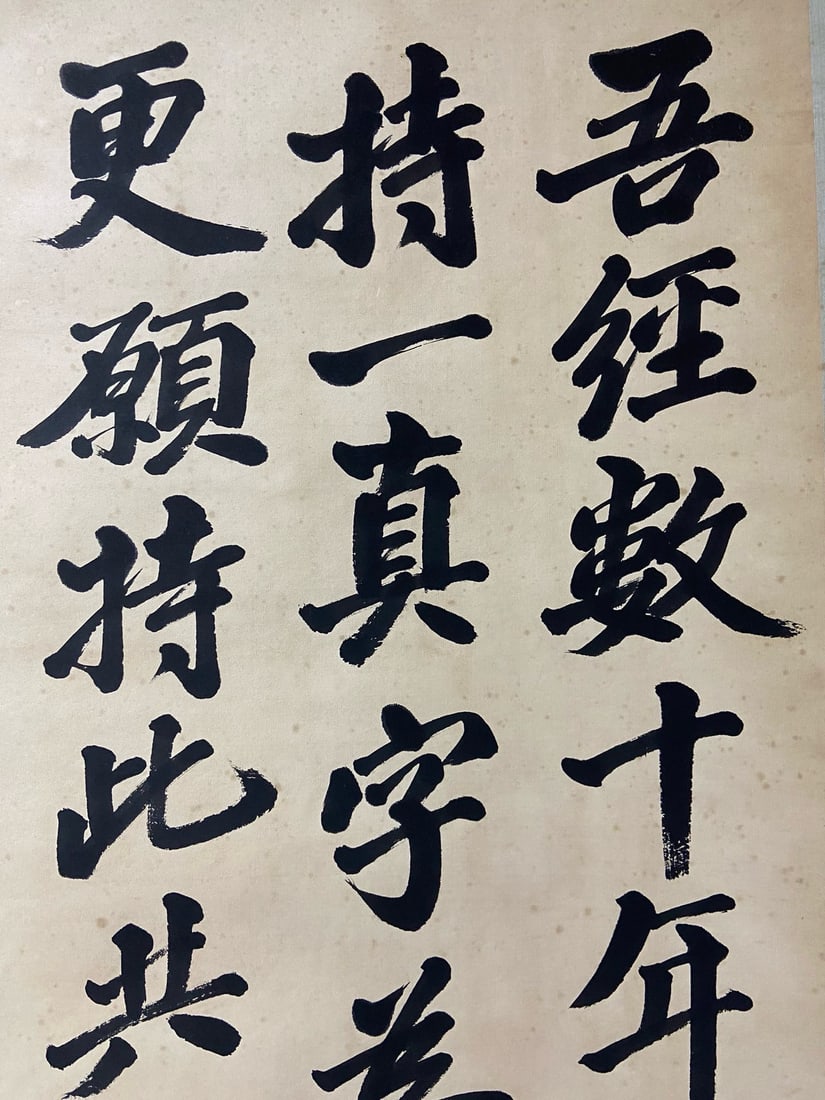 吾經數十年
持一真字
更願持此共